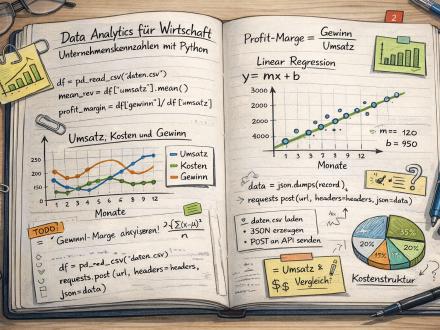 Data Analytics für Wirtschaft
Unternehmenskennzahlen mit Python
df = pd_read_csv("daten.csv")
mean_rev = df["umsatz"].mean()
profit_margin = df["gewinn"]/ df["umsatz"]
Umsatz, Kosten und Gewinn
250
200
150
0
1 3 3 4 5 6 7 8 9 12
Umsatz
Kosten
Gewinn
Monate
TODO:
requests.post (url, headers=headers,
json=data)
2
Profit-Marge = Gewinn
Umsatz
Linear Regression
y = mx + b
3000
3000
2000
4000
1 3 3 4 5 6 7 8 9 12
m = 120
b = 950
Monate
data = json.dumps(record)
requests.post (url, headers=headers, json=data)
daten.csv laden
JSON erzeugen
POST an API senden
= Umsatz &
$$ Vergleich?
35%
20%
20%
15%
Kostenstruktur